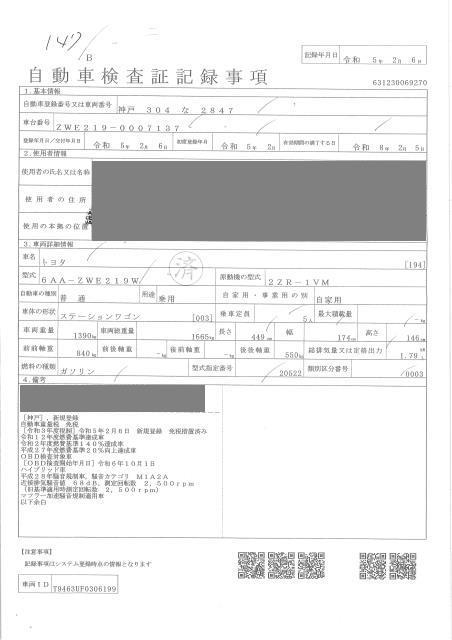 147
B
記録年月日 令和 5年 2月 6日
自動車検査証記録事項
631230069270
1.基本情報
自動車登録番号又は車両番号 神戸 304 な 2847
車台番号 ZWE219-0007137
登録年月日/交付年月日 令和 5年 2月 6日 初度登録年月 令和 5年 2月 有効期間の満了する日 令和 8年 2月 5日
2.使用者情報
使用者の氏名又は名称
使用者の住所
使用の本拠の位置
3.車両詳細情報
車名 トヨタ [194]
型式 6AA-ZWE219W 原動機の型式 2ZR-1VM
済
自動車の種別 普通 用途 乗用 自家用・事業用の別 自家用
車体の形状 ステーションワゴン [003] 乗車定員 5人 最大積載量 -kg
車両重量 1390kg 車両総重量 1665kg 長さ 449cm 幅 174cm 高さ 146cm
前前軸重 840kg 前後軸重 -kg 後前軸重 -kg 後後軸重 550kg 総排気量又は定格出力 1.79
燃料の種類 ガソリン 型式指定番号 20522 類別区分番号 0003
4.備考
[神戸],新規登録
自動車重量税 免税
[令和3年度税制]令和5年2月6日 新規登録 免税措置済み
令和12年度燃費基準達成車
令和2年度燃費基準140%達成車
平成27年度燃費基準20%向上達成車
OBD検査対象車
[OBD検査開始年月日]令和6年10月1日
ハイブリッド車
平成28年騒音規制車,騒音カテゴリ M1A2A
近接排気騒音値 68dB,測定回転数 2,500rpm
(旧基準適用時測定回転数 2,500rpm)
マフラー加速騒音規制適用車
以下余白
【注意事項】
記録事項はシステム登録時点の情報となります
車両ID T9463UF0306199